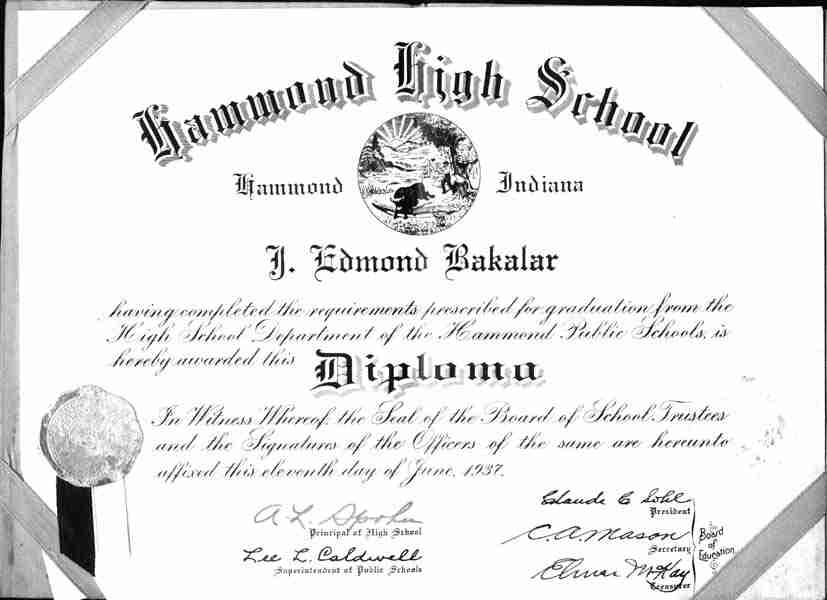 Hammond High School
Hammond Indiana
J. Edmond Bakalar
having completed the requirements prescribed for graduation from the
High School Department of the Hammond Public Schools, is
hereby awarded this
Diploma
In Witness Whereof, the Seal of the Board of School Trustees
and the Signatures of the Officers of the same are hereunto
affixed this eleventh day of June, 1937.
A. L. Spohn
Principal of High School
Lee L. Caldwell
Superintendent of Public Schools
Claude E Sohl
President
C A Mason
Secretary
Elmer McKay
Treasurer
Board
of
Education